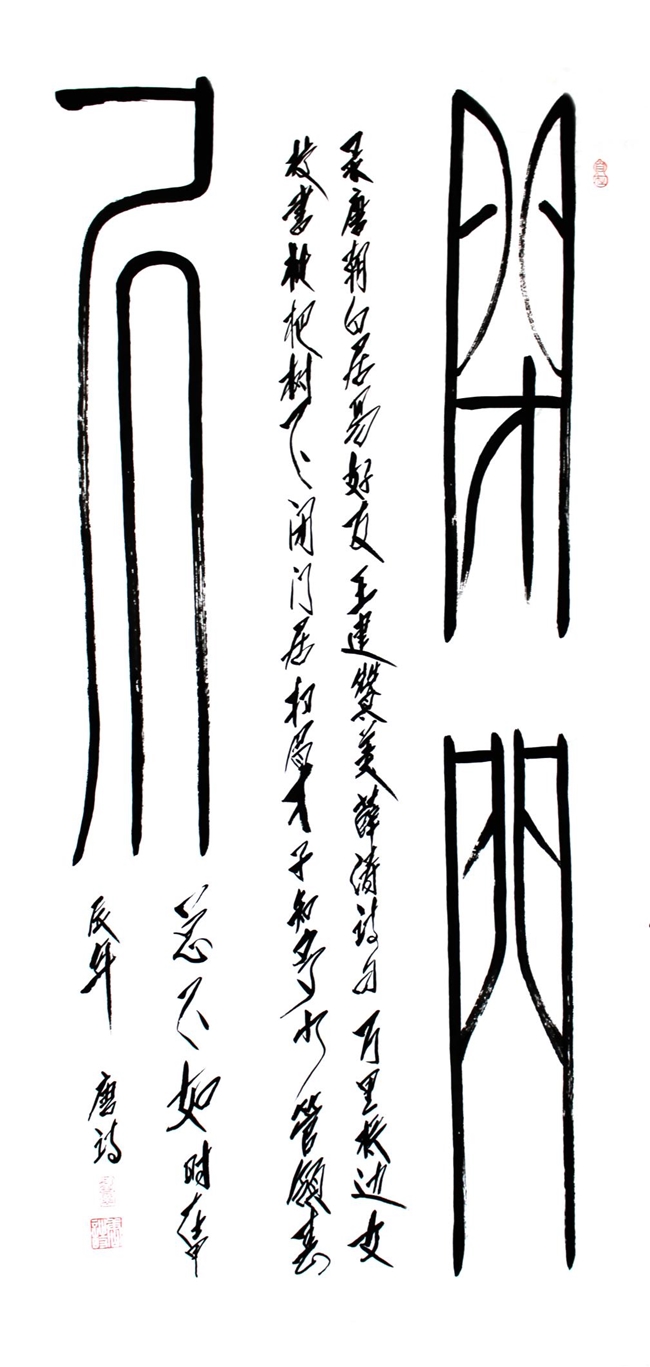 閉門
录唐朝白居易好友王建赞美薛涛诗句万里桥边女
校书枇杷树下闭门居扫眉才子知多少管领春
凥
总不如时在甲
辰年 唐诗